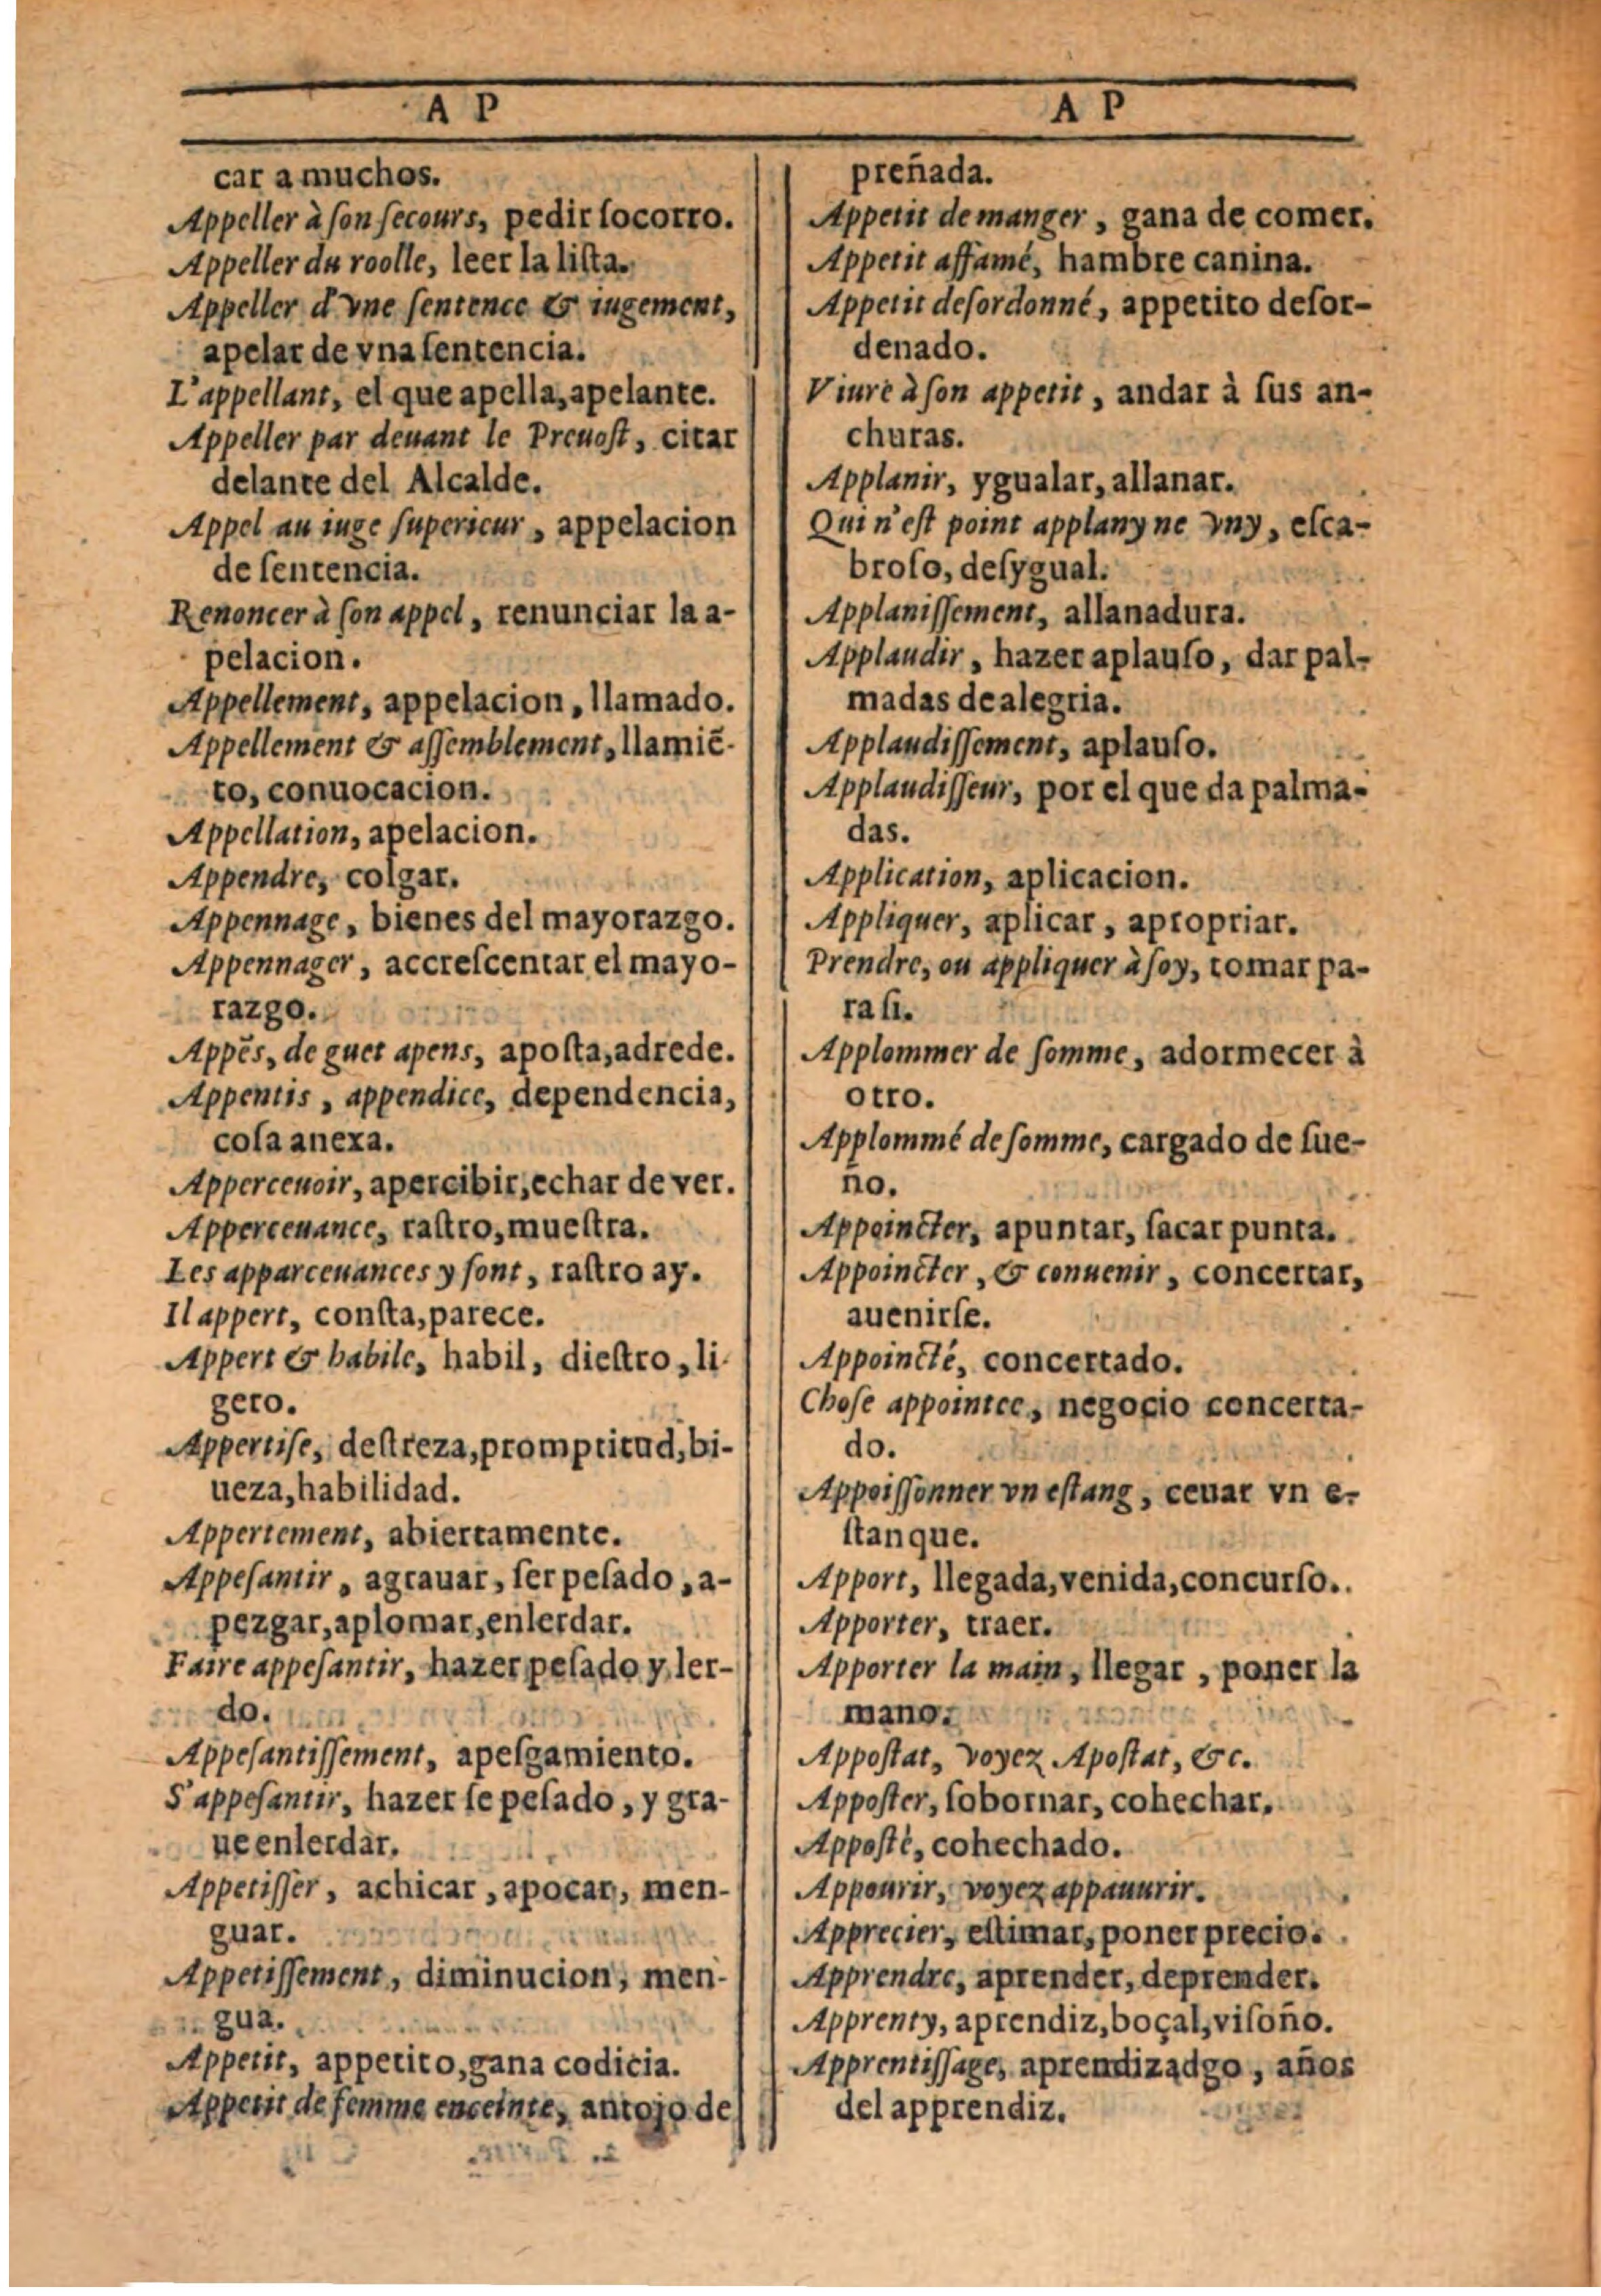 A P
car a muchos.
Appeller à ſon ſecours, pedir ſocorro.
Appeller du roolle, leer la liſta.
Appeller d'vne ſentence & iugement,
apelar de vna ſentencia.
L'appellant, el que apella, apelante.
Appeller par deuant le Preuoſt, citar
delante del Alcalde.
Appel au iuge ſuperieur, appelacion
de ſentencia.
Renoncer à ſon appel, renunciar la a-
pelacion.
Appellement, appelacion, llamado.
Appellement & aſſemblement, llamiē-
to, conuocacion.
Appellation, apelacion.
Appendre, colgar.
Appennage, bienes del mayorazgo.
Appennager, accreſcentar el mayo-
razgo.
Appēs, de guet apens, apoſta, adrede.
Appentis, appendice, dependencia,
coſa anexa.
Apperceuoir, apercibir, echar de ver.
Apperceuance, raſtro, mueſtra.
Les apparceuances y ſont, raſtro ay.
Il appert, conſta, parece.
Appert & habile, habil, dieſtro, li-
gero.
Appertiſe, deſtreza, promptitud, bi-
ueza, habilidad.
Appertement, abiertamente.
Appeſantir, agrauar, ſer peſado, a-
pezgar, aplomar, enlerdar.
Faire appeſantir, hazer peſado y ler-
do.
Appeſantiſſement, apeſgamiento.
S'appeſantir, hazer ſe peſado, y gra-
ue enlerdar.
Appetiſſer, achicar, apocar, men-
guar.
Appetiſſement, diminucion, men-
gua.
Appetit, appetito, gana codicia.
Appetit de femme enceinte, antojo de
A P
preñada.
Appetit de manger, gana de comer.
Appetit affamé, hambre canina.
Appetit deſordonné, appetito deſor-
denado.
Viure à ſon appetit, andar à ſus an-
churas.
Applanir, ygualar, allanar.
Qui n'eſt point applany ne vny, eſca-
broſo, deſygual.
Applaniſſement, allanadura.
Applaudir, hazer aplauſo, dar pal-
madas de alegria.
Applaudiſſement, aplauſo.
Applaudiſſeur, por el que da palma-
das.
Application, aplicacion.
Appliquer, aplicar, apropriar.
Prendre, ou appliquer à ſoy, tomar pa-
ra ſi.
Applommer de ſomme, adormecer à
otro.
Applommé de ſomme, cargado de ſue-
ño.
Appoincter, apuntar, ſacar punta.
Appoincter, & conuenir, concertar,
auenirſe.
Appoincté, concertado.
Choſe appointee, negocio concerta-
do.
Appoiſſonner vn eſtang, ceuar vn e-
ſtanque.
Apport, llegada, venida, concurſo.
Apporter, traer.
Apporter la main, llegar, poner la
mano.
Appoſtat, voyez Apoſtat, &c.
Appoſter, ſobornar, cohechar.
Appoſté, cohechado.
Appourir, voyez appauurir.
Apprecier, eſtimar, poner precio.
Apprendre, aprender, deprender.
Apprenty, aprendiz, boçal, viſoño.
Apprentiſſage, aprendizadgo, años
del apprendiz.